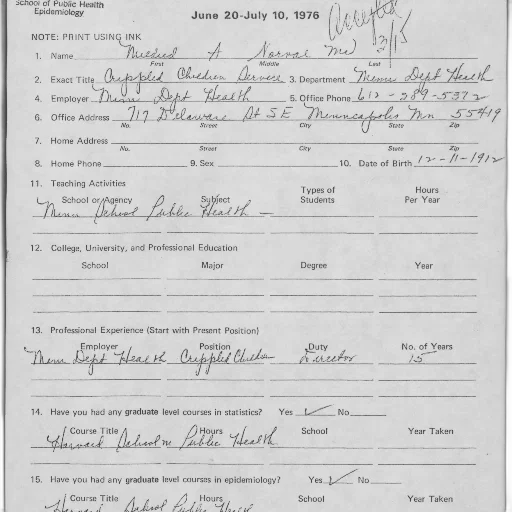 School of Public Health
Epidemiology
June 20-July 10, 1976
Accepted
3/15
NOTE: PRINT USING INK
1. Name Mildred A Norval MD
First Middle Last
2. Exact Title Crippled Children Service 3. Department Minn Dept Health
4. Employer Minn Dept Health 5. Office Phone 612-289-5372
6. Office Address 717 Delaware St SE Minneapolis Mn 55419
No. Street City State Zip
7. Home Address
No. Street City State Zip
8. Home Phone 9. Sex 10. Date of Birth 12-11-1912
11. Teaching Activities
School or Agency Subject Types of Students Hours Per Year
Minn School Public Health —
12. College, University, and Professional Education
School Major Degree Year
13. Professional Experience (Start with Present Position)
Employer Position Duty No. of Years
Minn Dept Health Crippled Children Director 15
14. Have you had any graduate level courses in statistics? Yes ✓ No
Course Title Hours School Year Taken
Harvard School Public Health
15. Have you had any graduate level courses in epidemiology? Yes ✓ No
Course Title Hours School Year Taken
Harvard School Public Health